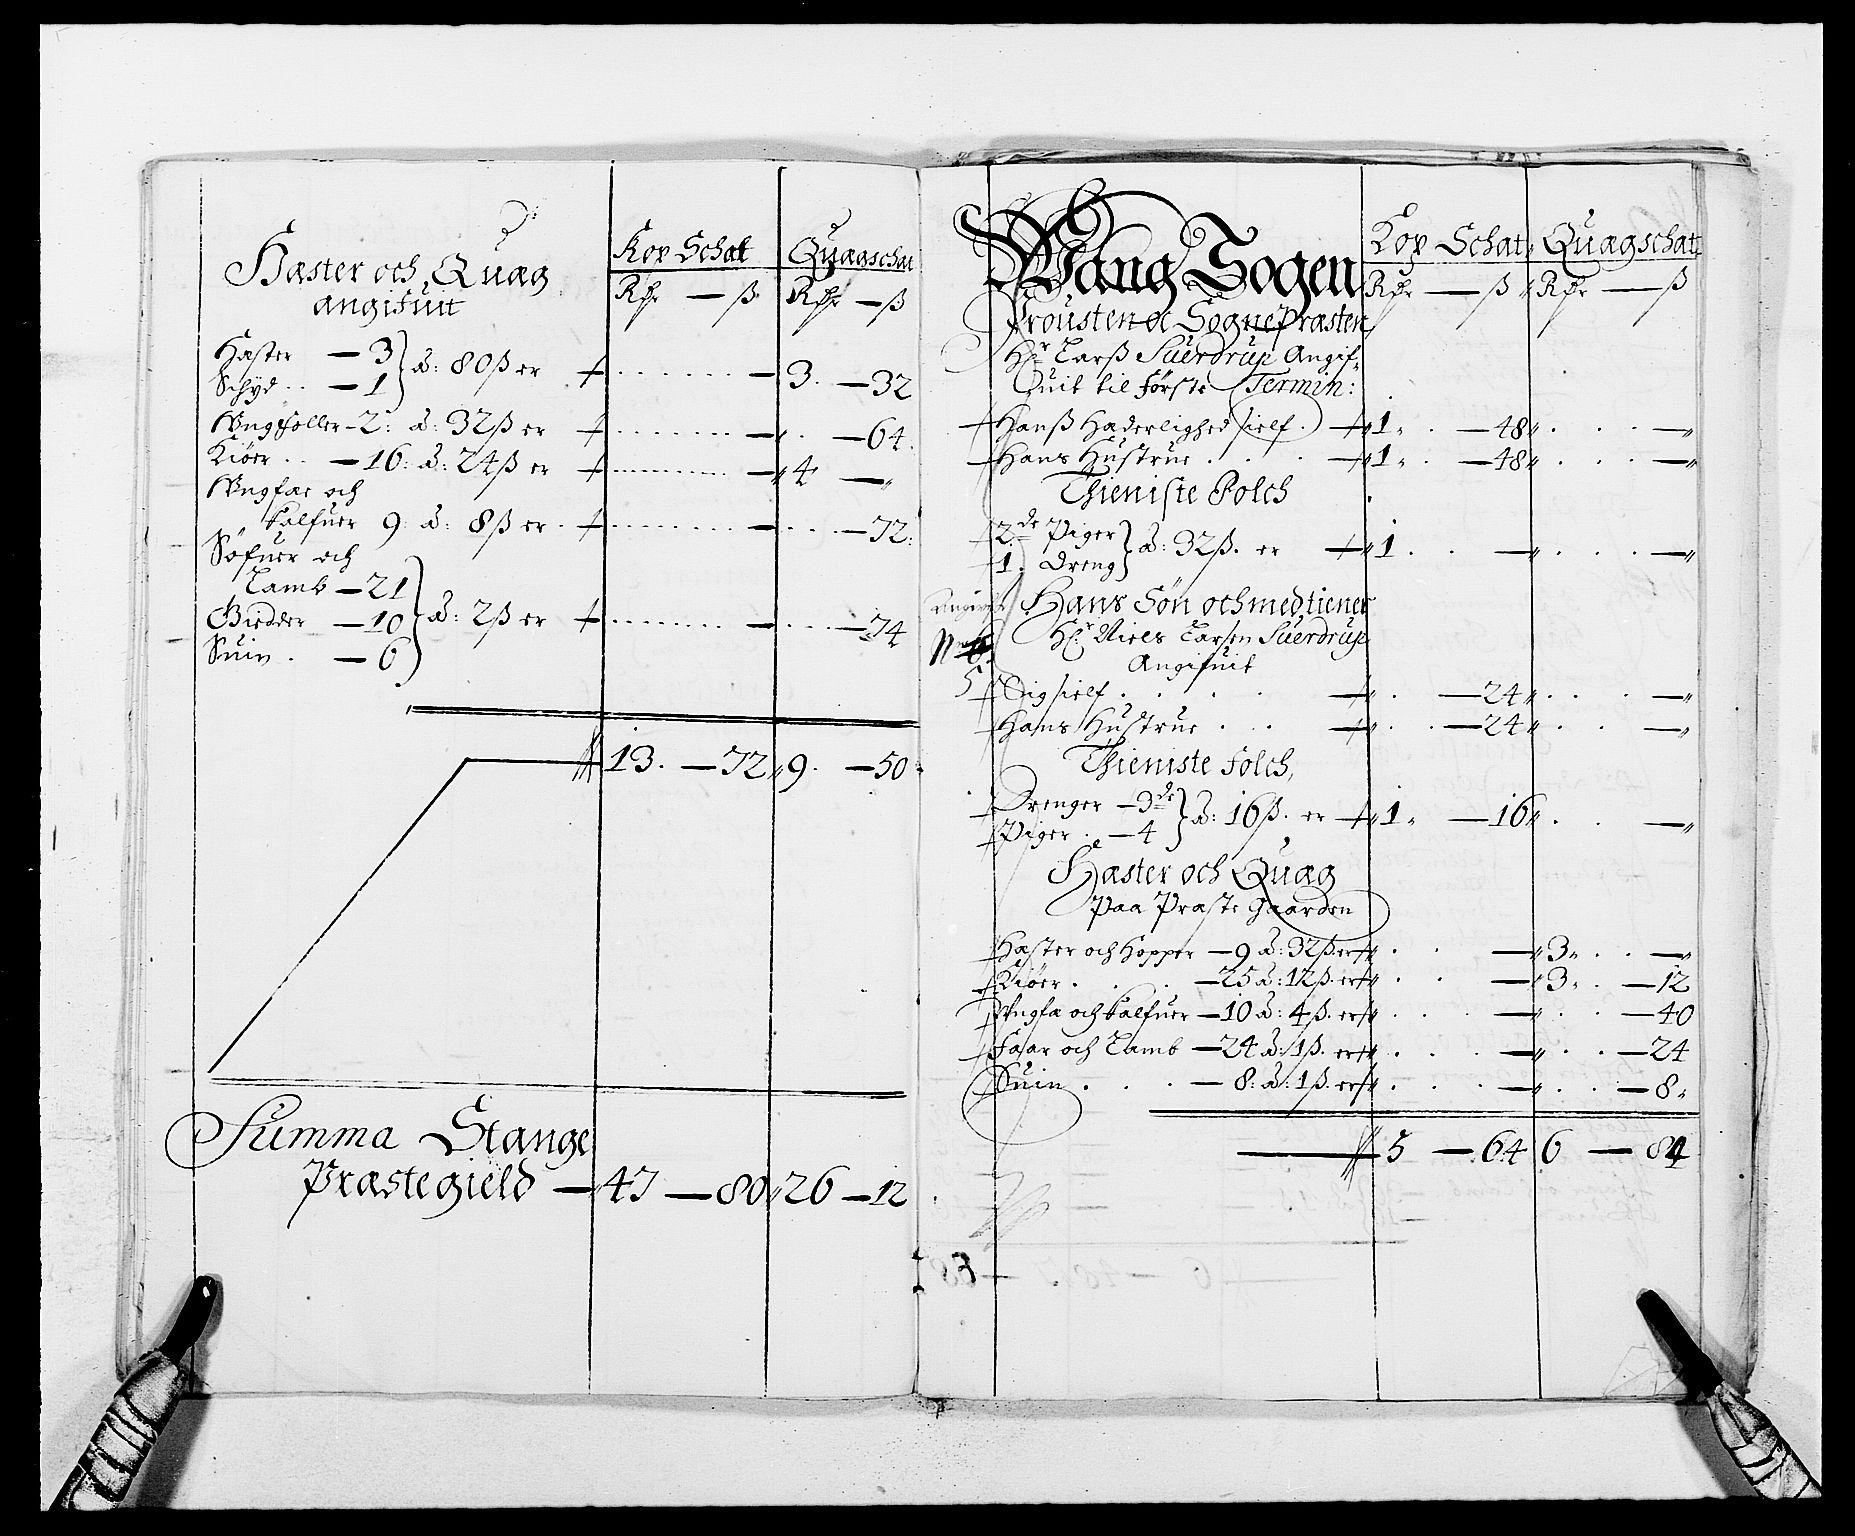 Kop Schat Quægschat
Hæster och Quæg
Rdr — ß Rdr — ß
angifuit
Hæster — 3
Schyd .. — 1 } à: 80 ß er 3. — 32
Ungfoller – 2: à: 32 ß er „ — 64.
Kiöer .. — 16: à: 24 ß er „ 4 — „
Ungfæe och
Kalfuer 9: à: 8 ß er — 72:
Söfuer och
Lamb — 21
Giedder — 10 } à: 2 ß er — 74
Suin . — 6
13. — 72 „ 9. — 50.
Summa Stange
Præstegield — 47 — 80 „ 26 — 12
Kop Schat „ Quægschat
Wang Sogen
Rdr — ß „ Rdr — ß
Prousten oc Sognepræsten
Hr Larß Suerdrup Angif-
uit til förste Termin:
Hanß Hæderlighed sielf . „ 1 „ — 48 „ — „
Hans Hustrue . . „ 1 „ — 48 „ — „
Thieniste Folch
2de Piger
1. Dreng } à: 32 ß. er „ 1 . — „ — „
Hans Sön och medtiener
Hr Niels Larsen Suerdrup
Angifuit
5 Sig sielf . . . „ . — 24 „ — „
Hans Hustrue . . „ . — 24 „ — „
Thieniste folch,
Drenger — 3de
Piger . — 4 } à: 16 ß. er „ 1 „ — 16 „ — „
Hæster och Quæg
Paa Præste Gaarden
Hæster och Hopper — 9 à: 32 ß. er „ — „ 3 „ — „
Kiöer . . — 25 à: 12 ß. er „ — „ 3 „ — 12
Ungfæ och Kalfuer — 10 à: 4 ß. er „ — „ — 40
Faar och Lamb — 24 à: 1 ß. er „ — „ — 24
Suin . . . — 8: à: 1 ß. er „ — „ — 8 „
5 — 64 6 — 84